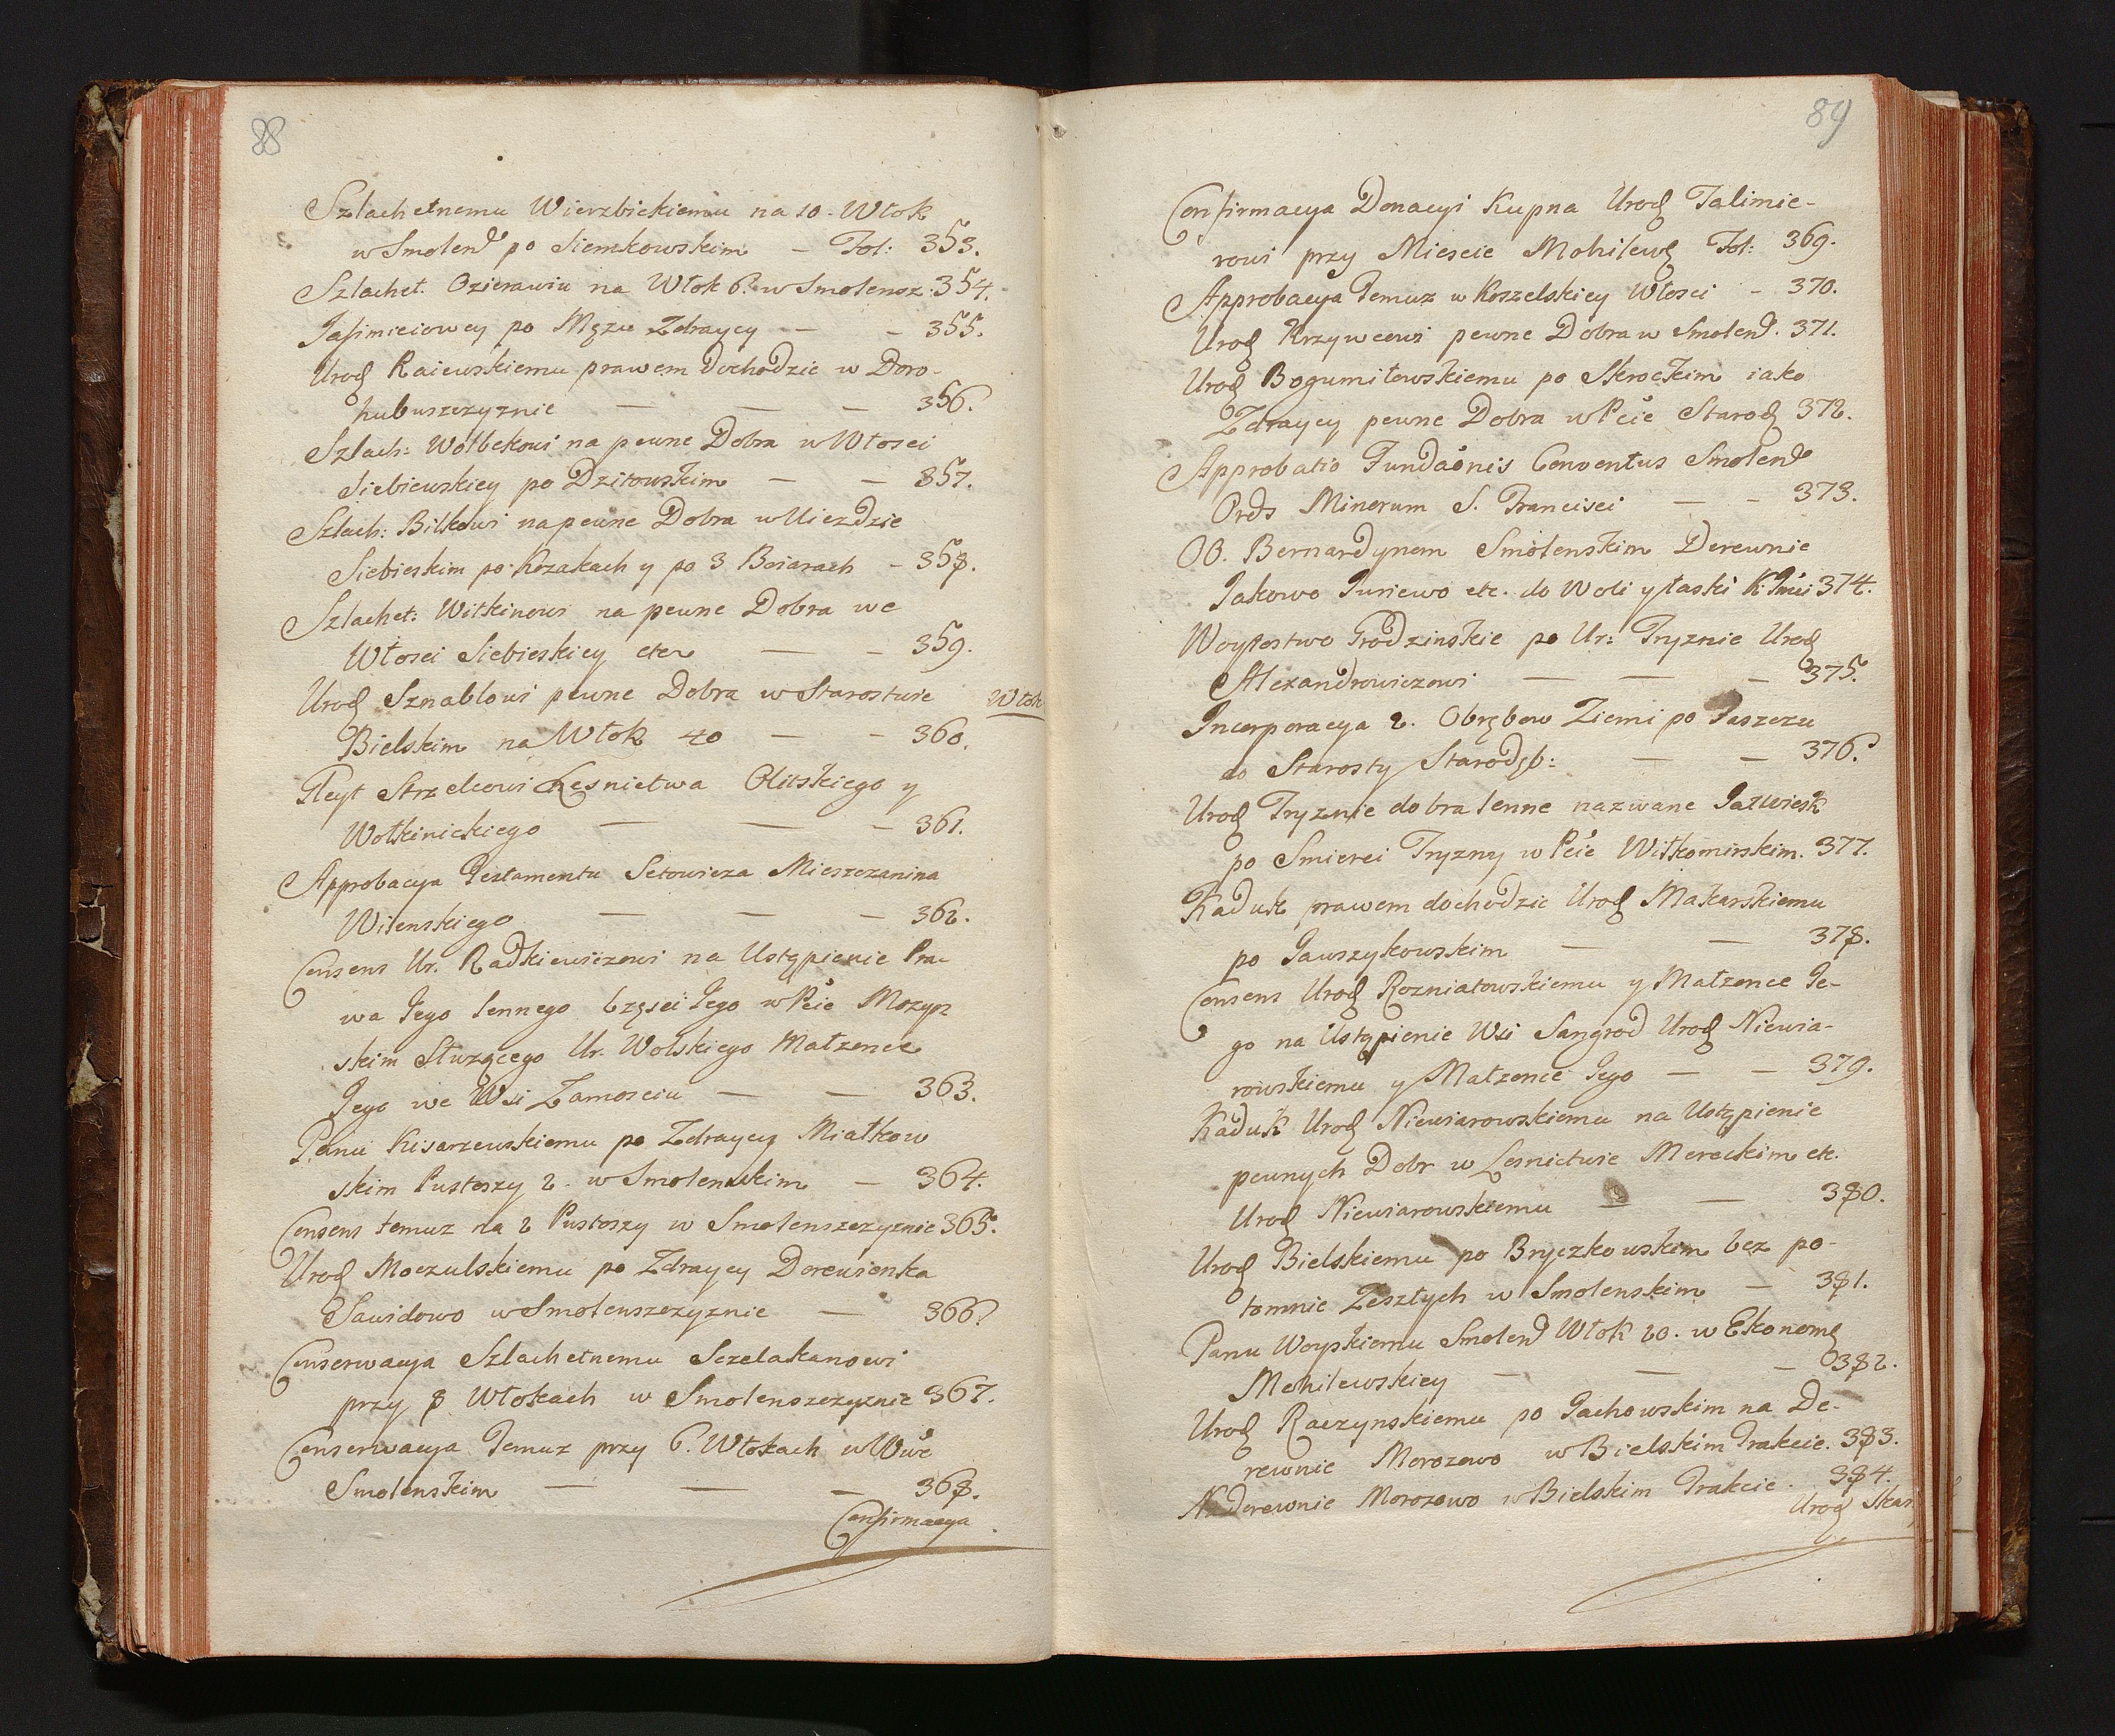 88
Szlachetnemu Wierzbickiemu na 10. Włok
w Smoleń po Siemkowskim — Fol: 353.
Szlachet. Ozierawiu na Włok 6. w Smolensz. 354.
Jasimiciowey po Mężu Zdraycy — — 355.
Urod Raiewskiemu prawem dochodzic w Doro-
hubuszczyznie — — — 356.
Szlach: Wolbekowi na pewne Dobra w Włosci
Siebiewskiey po Dzitowskim — — 357.
Szlach: Bilkowi na pewne Dobra w Uiezdzie
Siebieskim po Kozakach y po 3 Boiarach — 358.
Szlachet: Witkinowi na pewne Dobra we
Włosci Siebieskiey etc — — 359.
Urod Sznablowi pewne Dobra w Starostwie
Włok
Bielskim na Włok 40 — — 360.
Gleyt Strzelcowi Lesnictwa Olitskiego y
Wołkinickiego — — — 361.
Approbacya Testamentu Setowicza Mieszczanina
Wilenskiego — — — 362.
Consens Ur. Radkiewiczowi na Ustąpienie Pra-
wa Jego lennego częsci Jego w Pcie Mozyr
skim Służącego Ur. Wolskiego Małzence
Jego we Wsi Zamosciu — — 363.
Panu Kisarzewskiemu po Zdraycy Miatkow
skim Pustoszy 2. w Smolenskim — 364.
Consens temuz na 2 Pustoszy w Smolenszczyznie 365.
Urod Moczulskiemu po Zdraycy Derewienka
Sawidowo w Smolenszczyznie — 366.
Conserwacya Szlachetnemu Sczelakanowi
przy 8 Włokach w Smolenszczyznie 367.
Conserwacya Temuz przy 6. Włokach w Wwe
Smolenskim — — — 368.
Confirmacya
89
Confirmacya Donacyi Kupna Urod Talimie-
rowi przy Miescie Mohilewe Fol: 369.
Approbacya Temuz w Koszelskiey Włosci — 370.
Urod Krzywcowi pewne Dobra w Smoleń. 371.
Urod Bogumiłowskiemu po Skrockim iako
Zdraycy pewne Dobra w Pcie Starod 372.
Approbatio Fundaonis Conventus Smolen
Ords Minorum S. Francisci — — 373.
OO. Bernardynom Smolenskim Derewnie
Jakowo Juriewo etc. do Woli y łaski K Jmci 374.
Woytostwo Grodzinskie po Ur: Tryznie Urod
Alexandrowiczowi — — — 375.
Incorporacya 2. Obrębow Ziemi po Paszczu
do Starosty Starodub: — — 376.
Urod Tryznie dobra lenne nazwane Jazwiesk
po Smierci Tryzny w Pcie Wiłkomirskim. 377.
Kaduk prawem dochodzic Urod Makarskiemu
po Gawszykowskim — — 378.
Consens Urod Rozniatowskiemu y Małzonce Je-
go na Ustąpienie Wsi Sangrod Urod Niewia-
rowskiemu y Małzonce Jego — — 379.
Kaduk Urod Niewiarowskiemu na Ustąpienie
pewnych Dobr w Lesnictwie Mereckim etc.
Urod Niewiarowskiemu — — 380.
Urod Bielskiemu po Bryczkowskim bez po-
tomnie Zeszłych w Smolenskim — 381.
Panu Woyskiemu Smoleń Włok 20. w Ekonomę
Mohilewskiey — — — 382.
Urod Raczynskiemu po Gachowskim na De-
rewnie Morozowo w Bielskim Trakcie. 383.
Na derewnie Morozowo w Bielskim Trakcie. 384.
Urod Skar